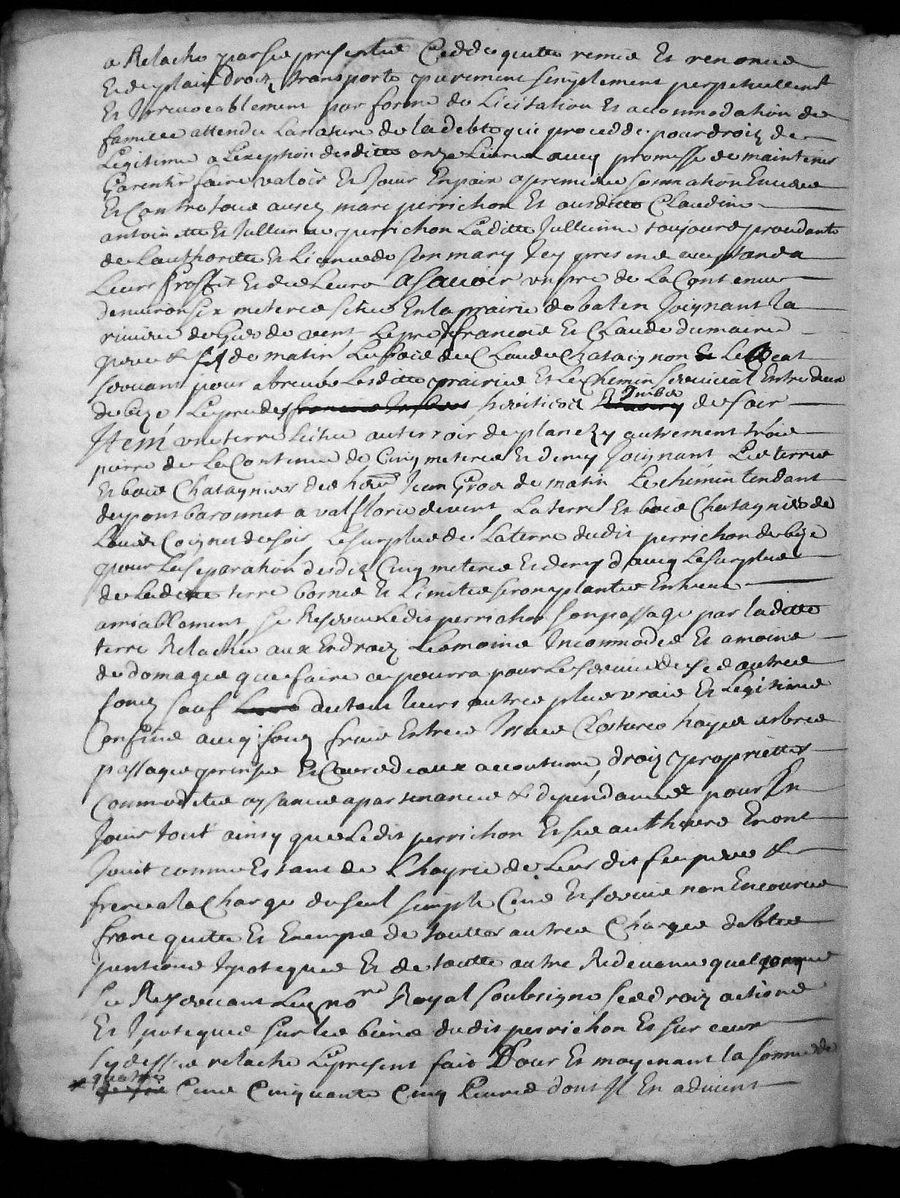 a Relaché par ses presentes Cedde quitte remie Et renonce
Et de plain droit transporte purement simplement perpetuellemt
Et Irrevocablement par forme de Licitation Et accommodation de
famille attendu La nature de la debte qui procedde pour droiz de
Legitime a L'exeption desditte onze Livres avecq promesse de maintenir
Garentir faire valoir Et Jouir En paix a premiere sommation Envers
Et Contre tous ausdz marc perrichon Et ausditte Claudine
antoinette Et Jullienne perrichon Laditte Jullienne toujours procedante
de L'authoritté Et Licance de son mary Icy presens acceptans a
Leurs proffit Et des Leurs a scavoir un pre de La Contenue
denviron six meterée scitué En la prairie de baten Joignant La
riviere de Gier de vent Le pre de francois Et Claude dumaire
pere & fil de matin Les bois de Claude Chataignon Et Le Beat
servant pour abreuver Lesditte prairie Et Le Chemin servicial Entre deux
de bize Le pre des heritiers Jubie de soir
Item une terre scituée au terroir de planezy autrement trois
pierre de La Contenue de Cinq meterée Et demy Joignant Les terre
Et bois Chataignier des hers Jean Gros de matin Le Chemin tendant
du pont baronnet a valflorie de vent La terre Et bois Chataignier de
Louis Coignet de soir Le surplus de La terre dudit perrichon de bize
pour La separation desdz Cinq meterée Et demy d'avecq Le surplus
de Laditte terre bornes Et Limites seront plantée Entreux
amiablement Se Reserve Ledit perrichon Son passage par laditte
terre Relaché aux Endroiz Le moins Incommodes Et a moins
de domages que faire ce pourra pour Le service de ses autres
fonds sauf du tout leurs autres plus vrais Et Legitimes
Confins avecq fond frais Entrées Issues Clostures hayes arbres
passages prises Et Cours deaux accoutumé, droiz propriettes
Commoditée aysances apartenances & dependances pour En
Jouir tout ainsy que Ledit perrichon Et ses autheurs En ont
Jouit comme Estant de L'hoyrie de Leurs dit feu pere &
freres a la Charge du seul simple Cens Et service non Encourus
franc quitte Et Exempts de touttes autres Charges debtes
pentions Ipoteques Et de toutte autre Redevance quelconque
Se Reservant Leq nore Royal soubsigné sesd droiz actions
Et Ipoteques sur les biens dudit perrichon Et sur ceux
sy dessus relaché Le present fait Pour Et moyenant la somme de
quatre Cens Cinquante Cinq Livres dont Il En advient